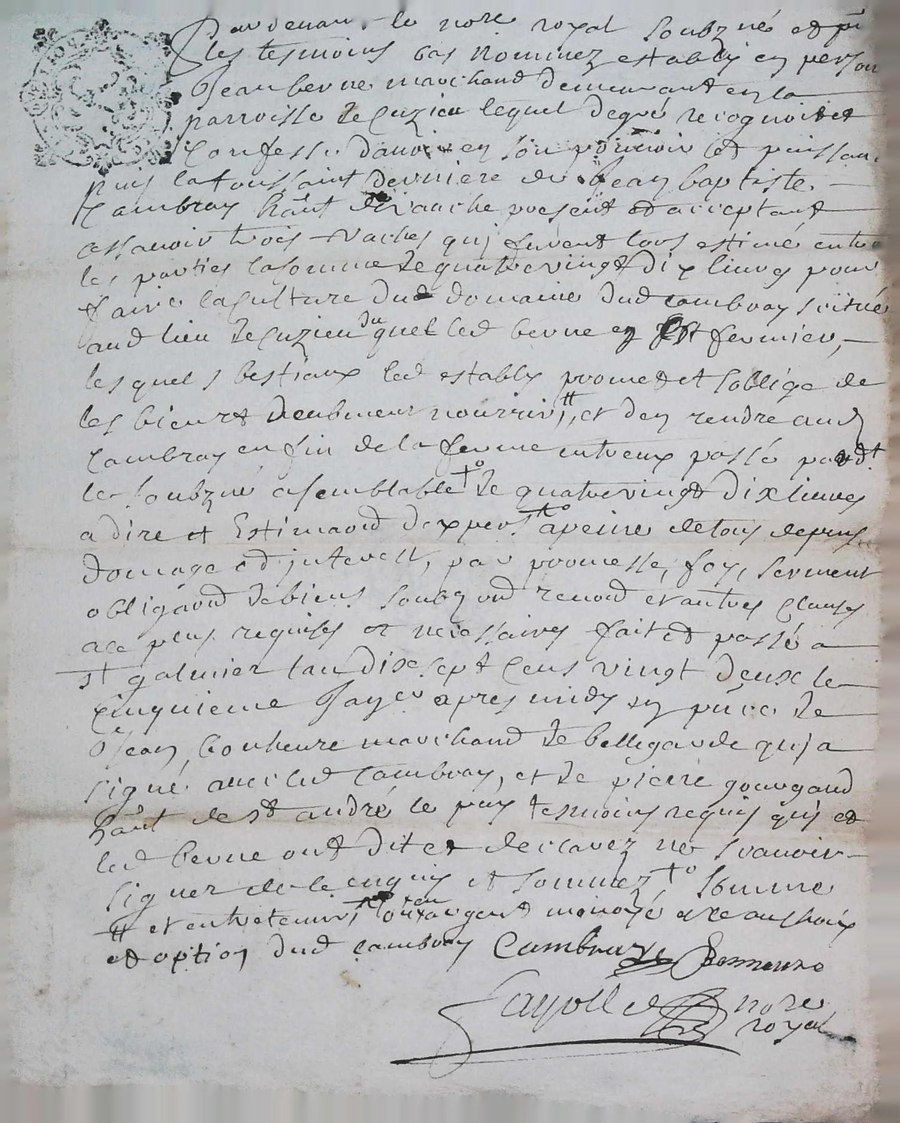 Par devant le nore royal soubzné et pñt
les tesmoins bas nommez estably en person
Jean berne marchand demeurant en la
parroisse de cuzieu lequel de gré recognoit et
confesse d'avoir en son pouvoir et puissan
puis la toussaint derniere de sr Jean baptiste
Cambray hânt de present et acceptant
assavoir trois vaches qui furent lors estimé entre
les parties la somme de quatre vingt dix livres pour
faire la culture dud domaine dud cambray scitué
aud lieu de cuzieu du quel led berne en est fermier,
lesquels bestiaux led estably promet et soblige de
les bien et deubment nourrir ⵌ, et den rendre aud
Cambray en fin de la ferme entreux passé pardt
le soubzné a semblable +o de quatre vingt dix livres
a dire et Estimaõn dexpers +o a peine de tous depens
domage et interest, par promesse, foy, serment
obligaõn de biens soubzmõn renoõn et autres clauses
a ce plus requises et necessaires fait et passé a
st galmier lan dix sept cens vingt deux le
cinquieme Janyer apres midy en pñce de
Jean bonheure marchand de bellegarde qui a
signé avec led Cambray, et de pierre gourgaud
hânt de st andré le puy tesmoins requis qui et
led berne ont dit et declarez ne scavoir
signer de ce enquis et sommez +o somme
ⵌ et entretenir +o ou en argent monoyé a ce au choix
et option dud cambray Cambray Bonneure
Fayolle nore
royal